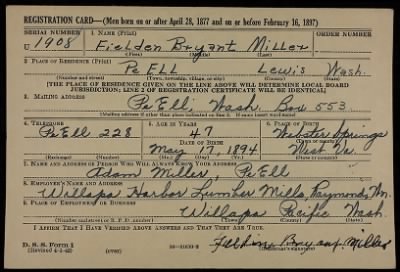 REGISTRATION CARD—(Men born on or after April 28, 1877 and on or before February 16, 1897)
SERIAL NUMBER 1. NAME (Print) ORDER NUMBER
U 1908 Fielden Bryant Miller
2. PLACE OF RESIDENCE (Print)
Pe Ell Lewis Wash.
(Number and street) (Town, township, village, or city) (County) (State)
[THE PLACE OF RESIDENCE GIVEN ON THE LINE ABOVE WILL DETERMINE LOCAL BOARD
JURISDICTION; LINE 2 OF REGISTRATION CERTIFICATE WILL BE IDENTICAL]
3. MAILING ADDRESS
Pe Ell, Wash. Box 553
(Mailing address if other than place indicated on line 2. If same insert word same)
4. TELEPHONE 5. AGE IN YEARS 6. PLACE OF BIRTH
Pe Ell 228 47 Webster Springs
DATE OF BIRTH
May 17, 1894 West Va.
(Exchange) (Number) (Mo.) (Day) (Yr.) (Town or county) (State or country)
7. NAME AND ADDRESS OF PERSON WHO WILL ALWAYS KNOW YOUR ADDRESS
Adam Miller, Pe Ell
8. EMPLOYER'S NAME AND ADDRESS
Willapa Harbor Lumber Mills, Raymond, Wn.
9. PLACE OF EMPLOYMENT OR BUSINESS
Willapa Pacific Wash.
(Number and street or R. F. D. number) (Town) (County) (State)
I AFFIRM THAT I HAVE VERIFIED ABOVE ANSWERS AND THAT THEY ARE TRUE.
D. S. S. Form 1
(Revised 4-1-42) (over) Miller